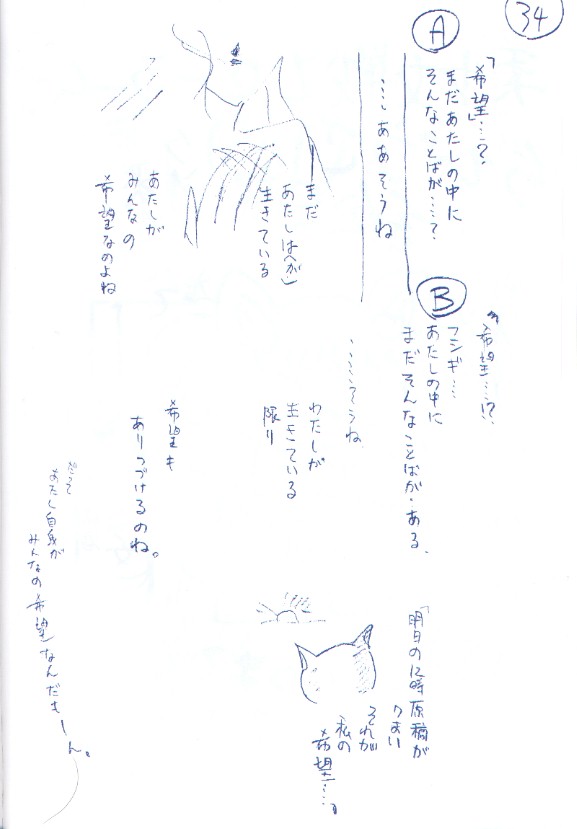 34
A
「希望」…?
まだあたしの中に
そんなことばが……?
…ああそうね
まだ
あたしは(が)
生きている
あたしが
みんなの
希望なのよね
B
「希望…!?
フシギ…
あたしの中に
まだそんなことばが・ある、
……そうね
わたしが
生きている
限り
希望も
ありつづけるのね。
だって
あたし自身が
みんなの希望なんだもーん。
「明日の12時原稿が
それが
私の
希望…。」